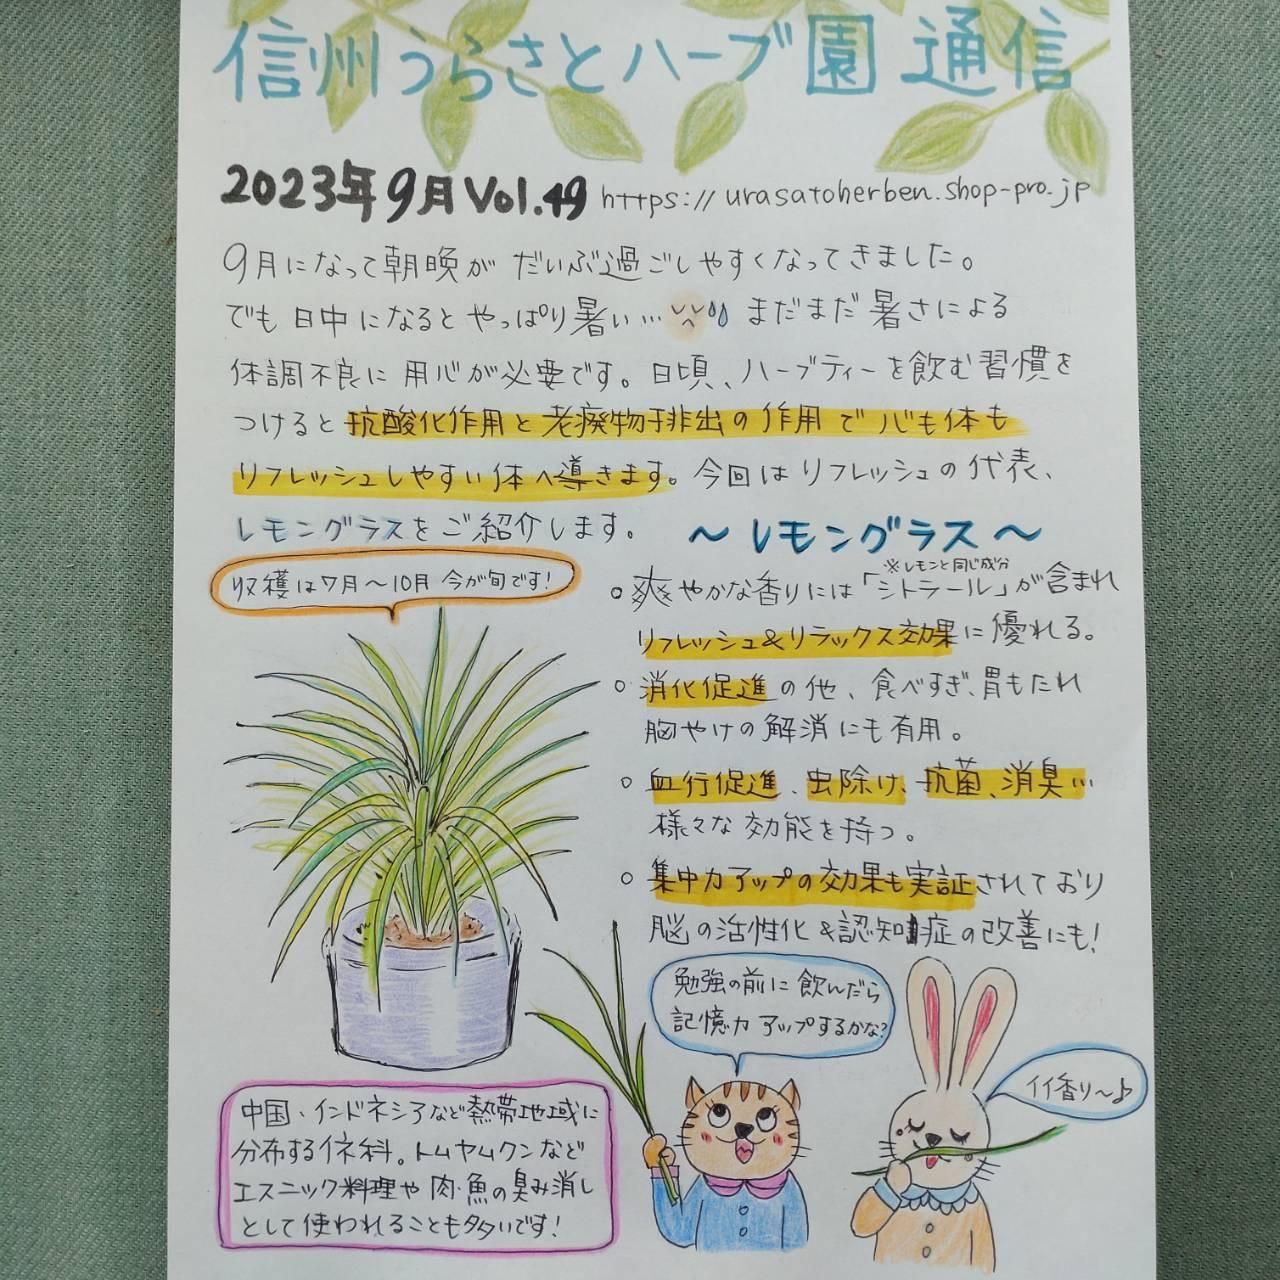 信州うらさとハーブ園 通信
2023年9月 Vol.49 https://urasatoherben.shop-pro.jp
9月になって朝晩が だいぶ過ごしやすくなってきました。
でも日中になるとやっぱり暑い… まだまだ暑さによる
体調不良に用心が必要です。日頃、ハーブティーを飲む習慣を
つけると抗酸化作用と老廃物排出の作用で心も体も
リフレッシュしやすい体へ導きます。今回はリフレッシュの代表、
レモングラスをご紹介します。
～レモングラス～
収穫は7月～10月 今が旬です！
※レモンと同じ成分
○爽やかな香りには「シトラール」が含まれ
リフレッシュ&リラックス効果に優れる。
○消化促進の他、食べすぎ、胃もたれ
胸やけの解消にも有用。
○血行促進、虫除け、抗菌、消臭…
様々な効能を持つ。
○集中力アップの効果も実証されており
脳の活性化&認知症の改善にも！
勉強の前に飲んだら
記憶力アップするかな？
イイ香り～♪
中国・インドネシアなど熱帯地域に
分布するイネ科。トムヤムクンなど
エスニック料理や肉・魚の臭み消し
として使われることも多いです！